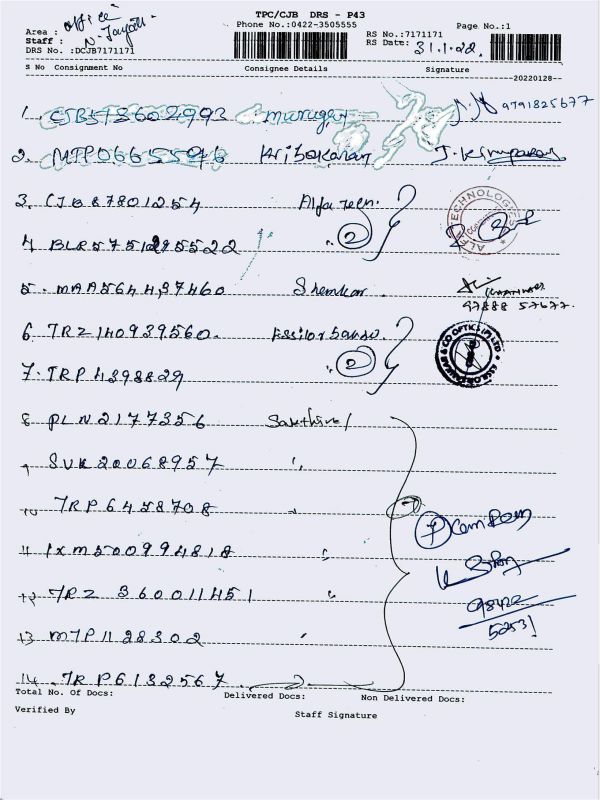 TPC/CJB DRS - P43
Phone No.:0422-3505555
Page No.:1
Area : office
Staff : N. Jayanthi
DRS No. :DCJB7171171
RS No.:7171171
RS Date: 31.1.22.
S No Consignment No Consignee Details Signature
20220128
1. CJB518602993 murugan 9791825677
2. MTP06655976 Kribakaran
3. CJB87801254 Alfa Tech.
ALFA TECHNOLOGIES
4. BLR5751295522 " 2
5. MAA564437460 97888 57677
6. TRZ140939560.
7. TRP4393829 " 2
8 PLN2177356 Sakthivel
9 SUK20068957 "
10 TRP6458708 "
7
11 IXM500994818 "
12 TRZ 360011451 "
98422
52531
13 MTP1128302 "
14. TRP6132567
Total No. of Docs: Delivered Docs: Non Delivered Docs:
Verified By Staff Signature